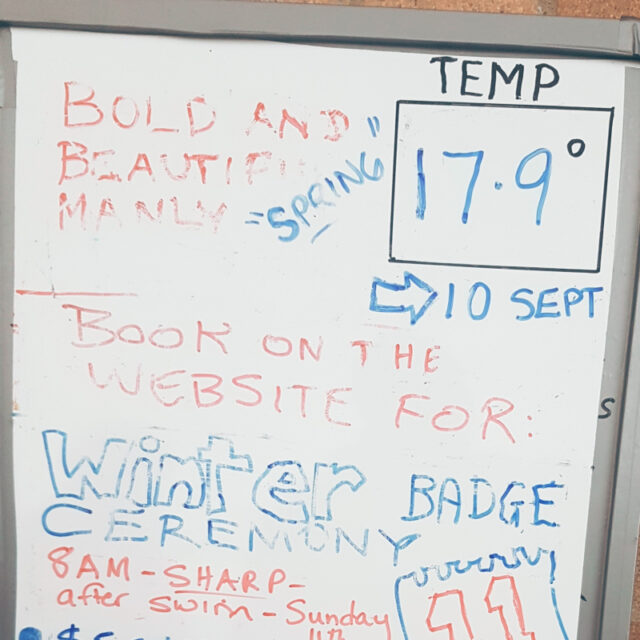 TEMP
BOLD AND
17.9°
BEAUTIF
MANLY = "SPRING"
10 SEPT
BOOK ON THE
WEBSITE FOR:
Winter BADGE
CEREMONY
8AM - SHARP -
after swim - Sunday
11th
11